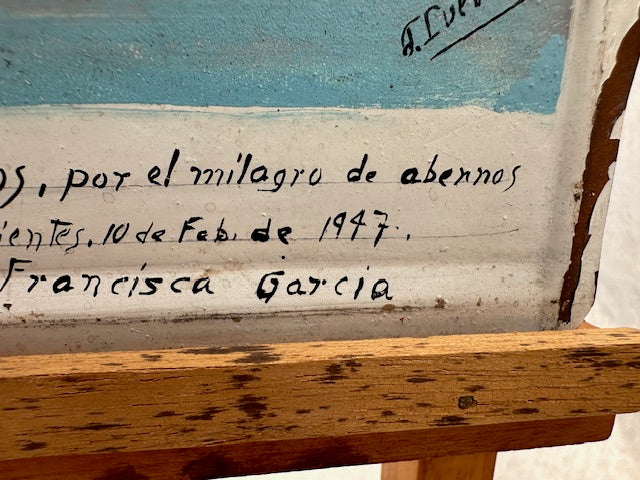 por el milagro de abennos
10 de Feb. de 1947.
Francisca Garcia